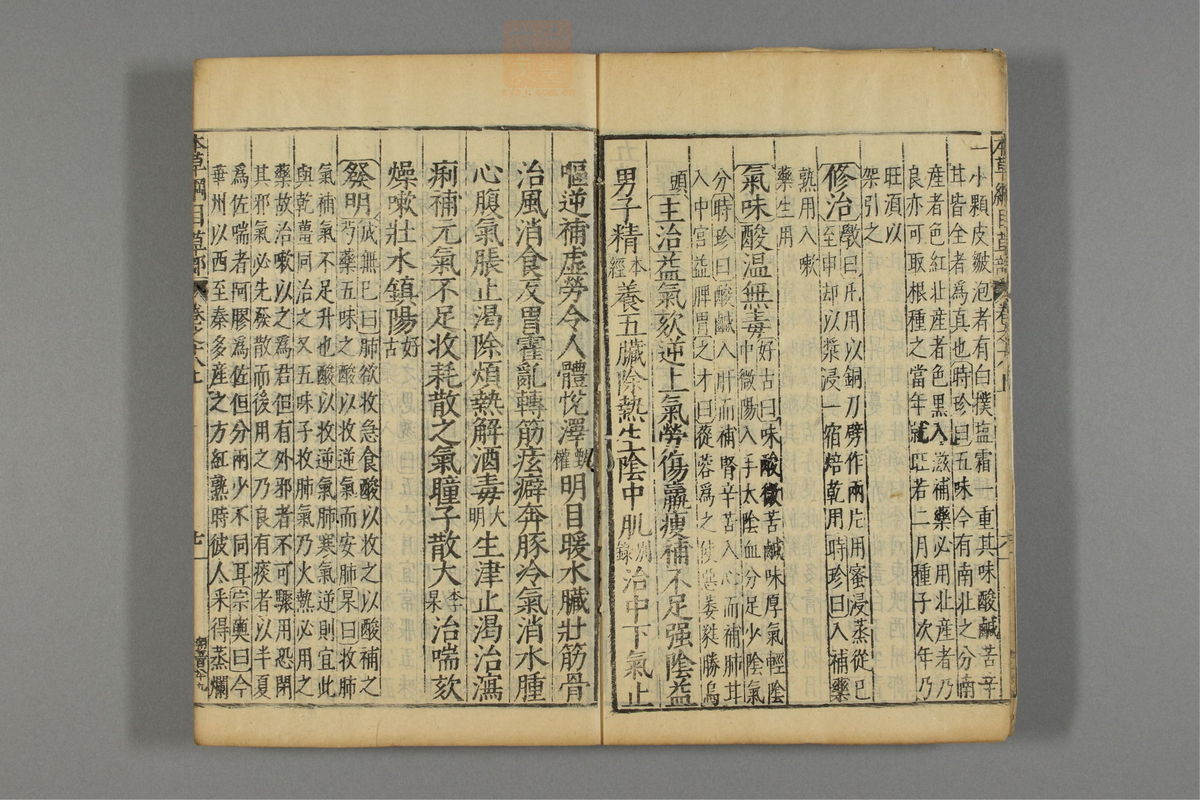 一小顆皮皺泡者有白撲盐霜一重其味酸鹹苦辛
甘皆全者為真也時珍曰五味今有南北之分南
産者色紅北産者色黒入滋補藥必用北産者乃
良亦可取根種之當年就旺若二月種子次年乃
旺湏以
架引之
修治斆曰凡用以銅刀劈作兩片用蜜浸蒸從巳
至申却以漿浸一宿焙乾用時珍曰入補藥
熟用入嗽
藥生用
氣味酸温無毒好古曰味酸微苦鹹味厚氣輕陰
中微陽入手太陰血分足少陰氣
分時珍曰酸鹹入肝而補腎辛苦入心而補肺甘
入中宫益脾胃之才曰蓯蓉為之使惡萎蕤勝烏
頭
主治益氣欬逆上氣勞傷羸瘦補不足强陰益
男子精本經養五臟除熱生陰中肌别錄治中下氣止
嘔逆補虚勞令人體悅澤甄權明目暖水臟壯筋骨
治風消食反胃霍亂轉筋痃癖奔豚冷氣消水腫
心腹氣脹止渴除煩熱解酒毒大明生津止渴治瀉
痢補元氣不足收耗散之氣瞳子散大李杲治喘欬
燥嗽壯水鎮陽好古
發明成無已曰肺欲收急食酸以收之以酸補之
芍藥五味之酸以收逆氣而安肺杲曰收肺
氣補氣不足升也酸以收逆氣肺寒氣逆則宜此
與乾薑同治之又五味子收肺氣乃火熱必用之
藥故治嗽以之為君但有外邪者不可驟用恐閉
其邪氣必先發散而後用之乃良有痰者以半夏
為佐喘者阿膠為佐但分兩少不同耳宗奭曰今
華州以西至秦多産之方紅熟時彼人采得蒸爛
本草綱目草部